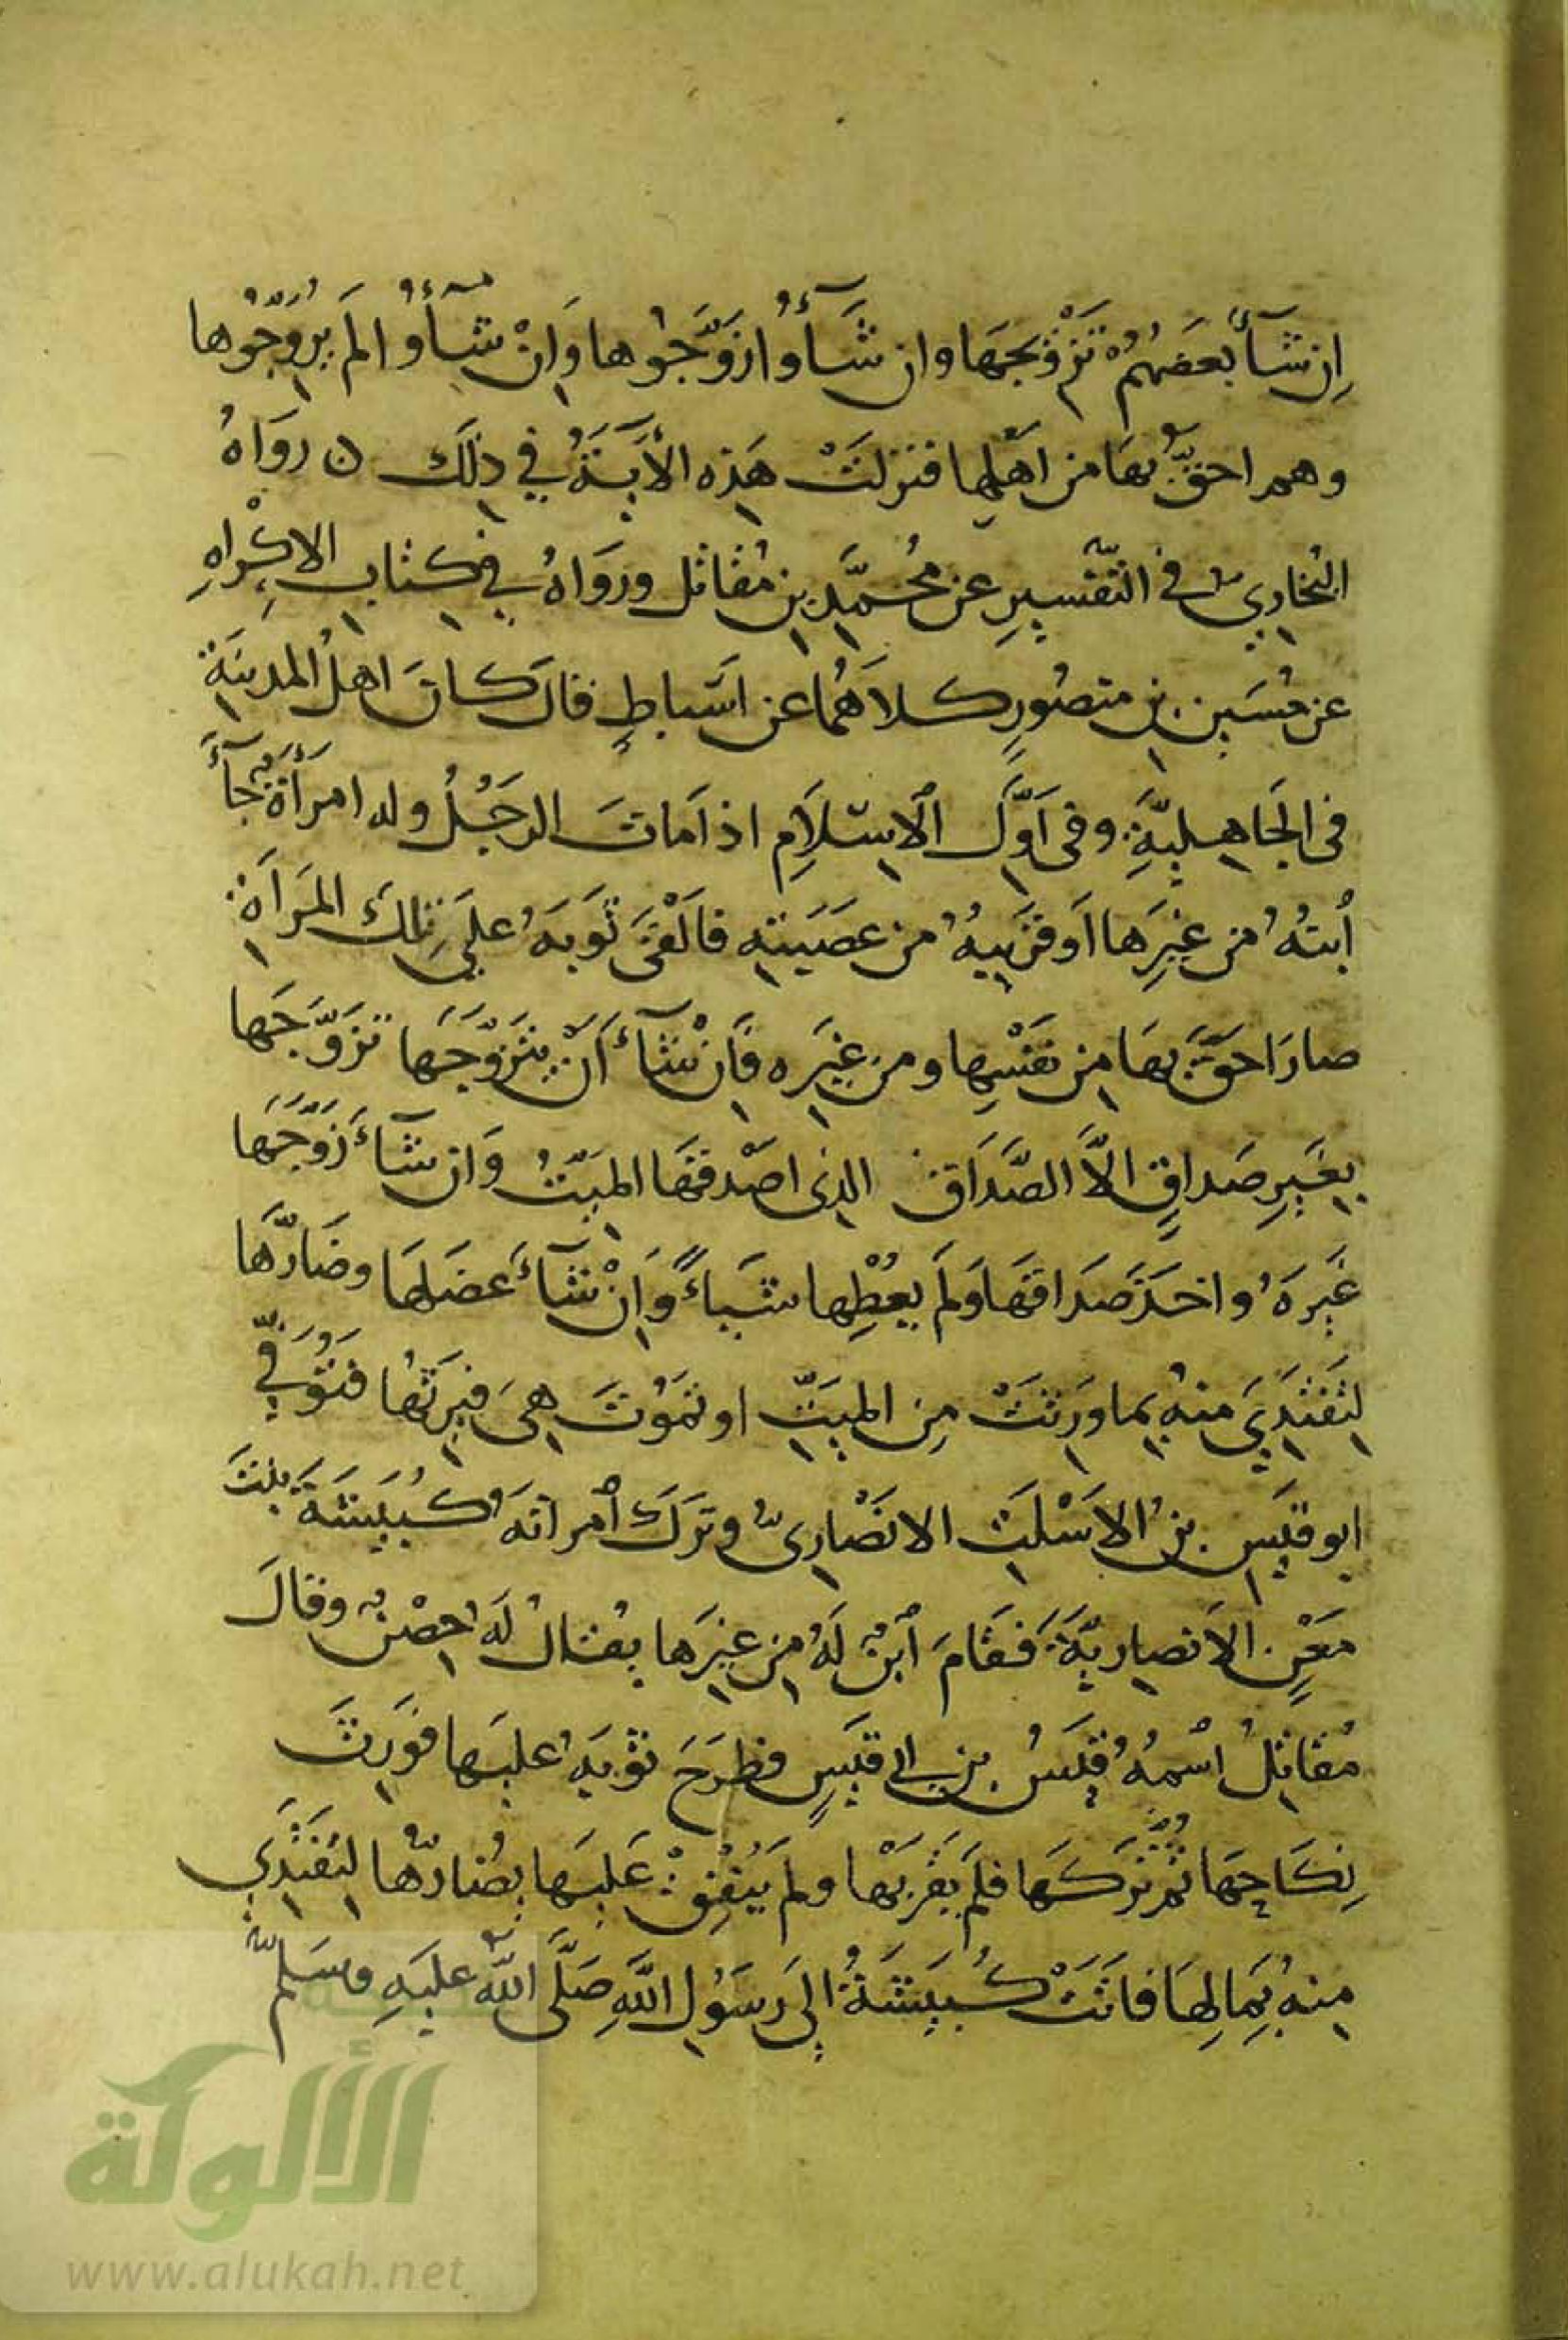 إن شآء بعضهم تزوجها وان شآؤا زوجوها وإن شآؤا لم يزوجوها
وهم احق بها من اهلها فنزلت هذه الآية في ذلك ن رواه
البخاري في التفسير عن محمد بن مقاتل ورواه في كتاب الاكراه
عن حسين بن منصور كلاهما عن اسباط قال كان اهل المدينة
في الجاهلية وفي اول الاسلام اذا مات الرجل وله امرأة جآء
ابنه من غيرها او قريبه من عصبته فالقى ثوبه على تلك المرأة
صار احق بها من نفسها ومن غيره فإن شآء أن يتزوجها تزوجها
بغير صداق الا الصداق الذي اصدقها الميت وان شآء زوجها
غيره واخذ صداقها ولم يعطها شياءً وإن شآء عضلها وضارها
لتفتدي منه بما ورثت من الميت او تموت هي فيرثها فتوفي
ابو قيس بن الاسلت الانصاري وترك امرأته كبيشة بنت
معن الانصارية فقام ابن له من غيرها يقال له حصن وقال
مقاتل اسمه قيس بن ابي قيس فطرح ثوبه عليها فورث
نكاحها ثم تركها فلم يقربها ولم ينفق عليها يضارها لتفتدي
منه بمالها فاتت كبيشة إلى رسول الله صلى الله عليه وسلم
الألوكة
www.alukah.net